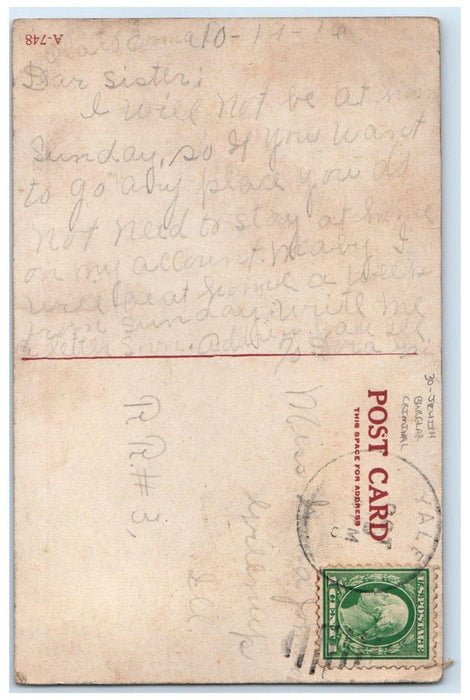 A-748
Erma 10-19-16
Dear Sister:
I will not be at home
Sunday, so if you want
to go any place you do
not need to stay at home
on my account. Maby I
will be at home a week
from Sunday. Write me
a letter soon. Address Yale Ill
POST CARD
THIS SPACE FOR ADDRESS
30-JEWISH
BURGLAR
CRIMINAL
YALE
OCT
M
Miss
Greenup
Ill
R.R.#3,
U.S. POSTAGE
1 CENT 1